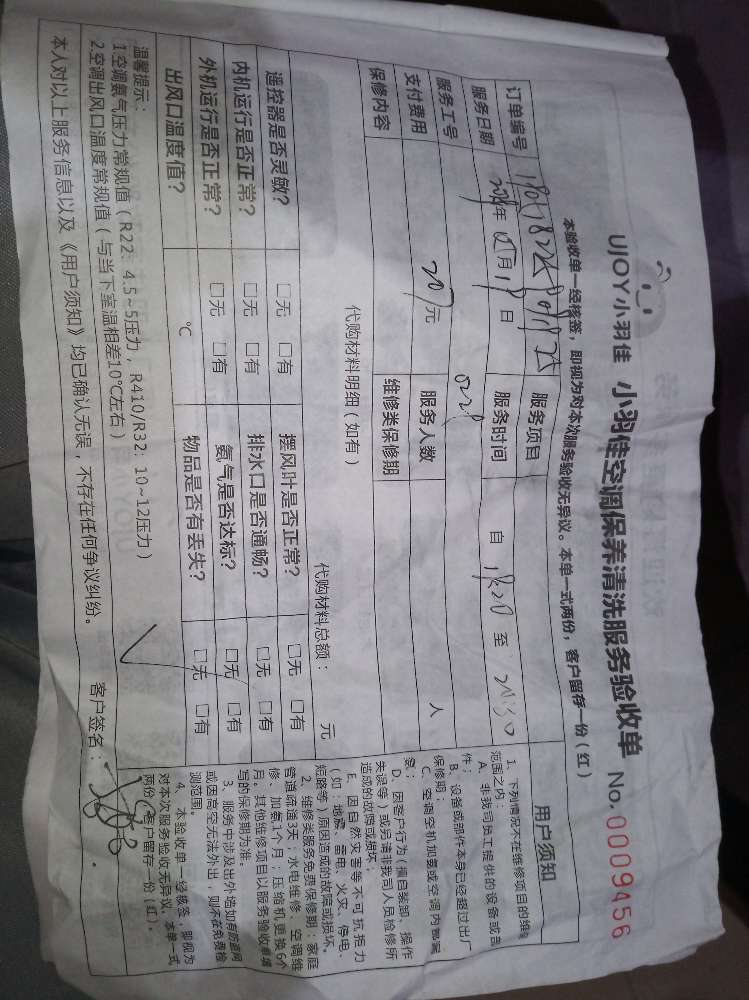 UJOY小羽佳 小羽佳空调保养清洗服务验收单 No.0009456
本验收单一经核签，即视为对本次服务验收无异议。本单一式两份，客户留存一份（红）
订单编号
服务项目
服务日期 年 月 日
服务时间 自 至
服务工号
支付费用 元
服务人数 人
保修内容
维修类保修期
代购材料明细（如有）
代购材料总额： 元
遥控器是否灵敏？ □无 □有
摆风叶是否正常？ □无 □有
内机运行是否正常？ □无 □有
排水口是否通畅？ □无 □有
外机运行是否正常？ □无 □有
氨气是否达标？ □无 □有
出风口温度值？ ℃
物品是否有丢失？ □无 □有
温馨提示：
1.空调氨气压力常规值（R22：4.5~5压力，R410/R32：10~12压力）
2.空调出风口温度常规值（与当下室温相差10℃左右）
本人对以上服务信息以及《用户须知》均已确认无误，不存在任何争议纠纷。
客户签名：
用户须知
1、下列情况不在维修项目的维修
范围之内：
A、非我司员工提供的设备或部
件；
B、设备或部件本身已经超过出厂
保修期；
C、空调空机加氨或空调内部漏
氨；
D、因客户行为（擅自装卸、操作
失误等）或另请非我司人员检修所
造成的故障或损坏；
E、因自然灾害等不可抗拒力
（如：地震、雷电、火灾、停电、
短路等）原因造成的故障或损坏。
2、维修类服务免费保修期：家庭
管道疏通3天；水电维修、空调维
修、加氨1个月；压缩机更换6个
月。其他维修项目以服务验收单填
写的保修期为准。
3、服务中涉及出外墙如有防盗网
或因高空无法外出，则不在免费检
测范围。
4、本验收单一经核签，即视为
对本次服务验收无异议。本单一式
两份，客户留存一份（红）。